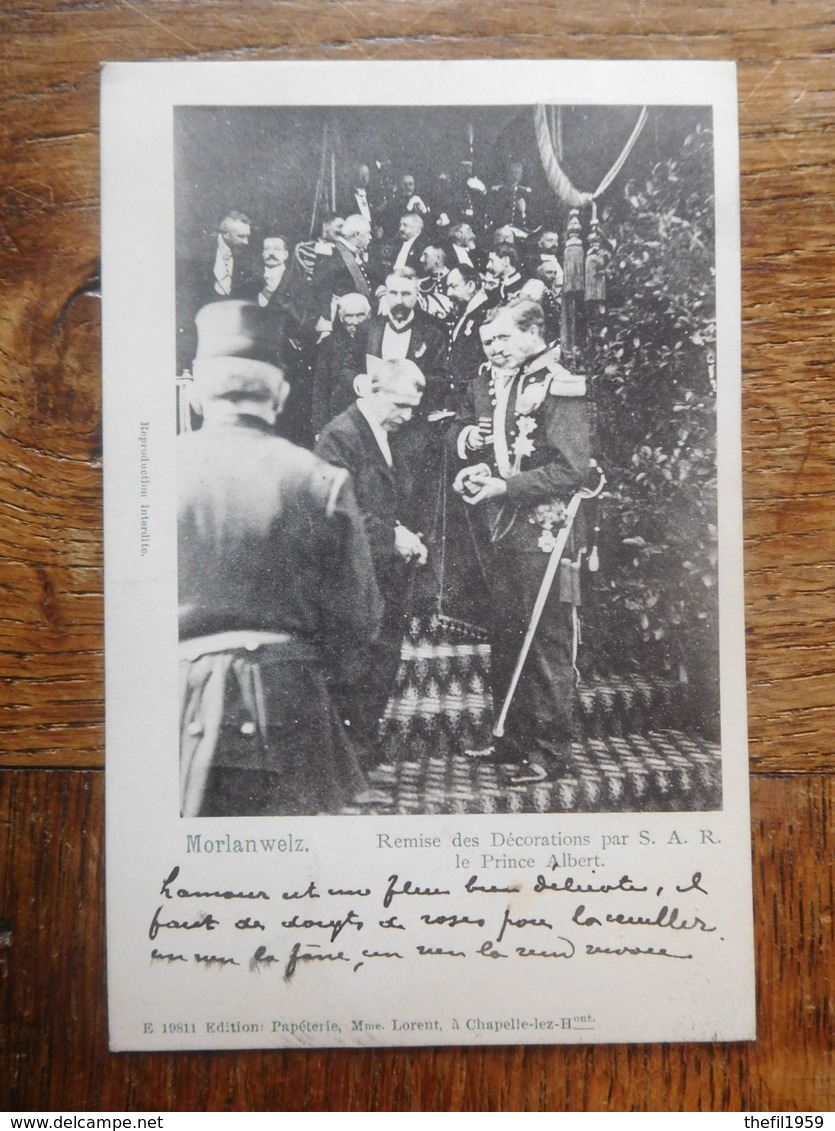 Reproduction interdite.
Morlanwelz.
Remise des Décorations par S. A. R.
le Prince Albert.
lamour est une fleur bien délicate, il
faut des doigts de roses pour la cueillir
un rien la fâne, un rien la rend vivace
E 19811 Edition: Papéterie, Mme. Lorent, à Chapelle-lez-Hont.
thefil1959